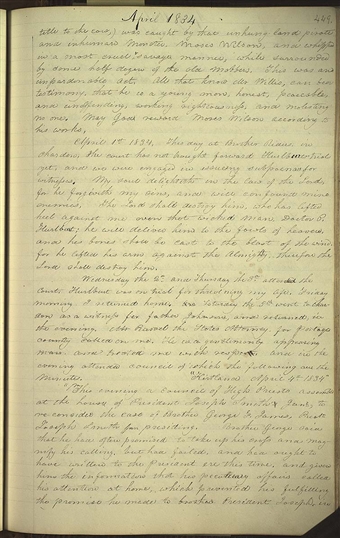 April 1834
449
title to the cow,) was caught by that unhung land pirate
and inhuman monster, Moses Wilson, and whipped
in a most cruel & savage manner, while surrounded
by some half dozen of the old mobbers. This was an
unpardonable act. All that know Mr Ivie, can bear
testimony, that he is a young man, honest, peaceable
and unoffending, working righteousness, and molesting
no one. May God reward Moses Wilson according to
his works.
April 1st 1834. This day at Brother
chardon. The court has not brought forward Hurlbut's trial
yet, and we were engaged in issuing subpoenas for
witnesses. My soul delighteth in the law of the Lord,
for he forgiveth my sins, and will confound mine
enemies. The Lord shall destroy him, who has lifted his
heel against me even that wicked man Doctor P.
Hurlbut; he will deliver him to the fowls of heaven,
and his bones shall be cast to the blast of the wind,
for he lifted his arm against the Almighty, therefore the
Lord shall destroy him.
Wednesday the 2nd and Thursday the 3rd attended the
Court. Hurlbut was on trial for threatening my life. Friday
morning I returned home. Saturday the 5th went to Char-
don as a witness for father Johnson, and returned in
the evening. Mr Bissell the States Attorney for Portage
county called on me. He is a gentlemanly appearing
man, and treated me with respect, and in the
evening attended council of which the following are the
Minutes. "Kirtland April 4th 1834
"This evening a Council of High Priests assembled
at the house of President Joseph Smith Jun, to
re-consider the case of Brother George F. James. Prest
Joseph Smith Jun presiding. Brother George said
that he had often promised to take up his cross and mag-
nify his calling, but had failed, and had ought to
have written to the President ere this time, and given
him the information that his pecuniary affairs called
his attention at home, which prevented his fulfilling
the promise he made to brother President Joseph, in